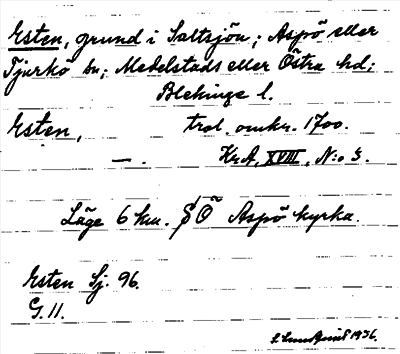 Esten, grund i Saltsjön; Aspö eller
Tjurkö sn; Medelstads eller Östra hd;
Blekinge l.
Esten, trol. omkr. 1700.
—. KrA, XVIII, N:o 3.
Läge 6 km. SÖ Aspö kyrka.
Esten Sj. 96.
G. 11.
1936.